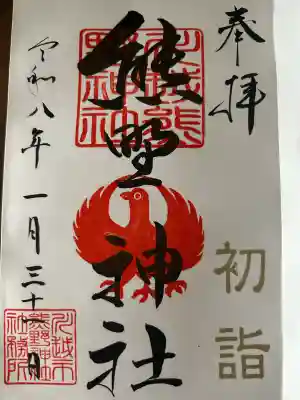 奉拝
初詣
川越熊
野神社
熊野神社
令和八年一月三十一日
川越市
熊野神社
社務所